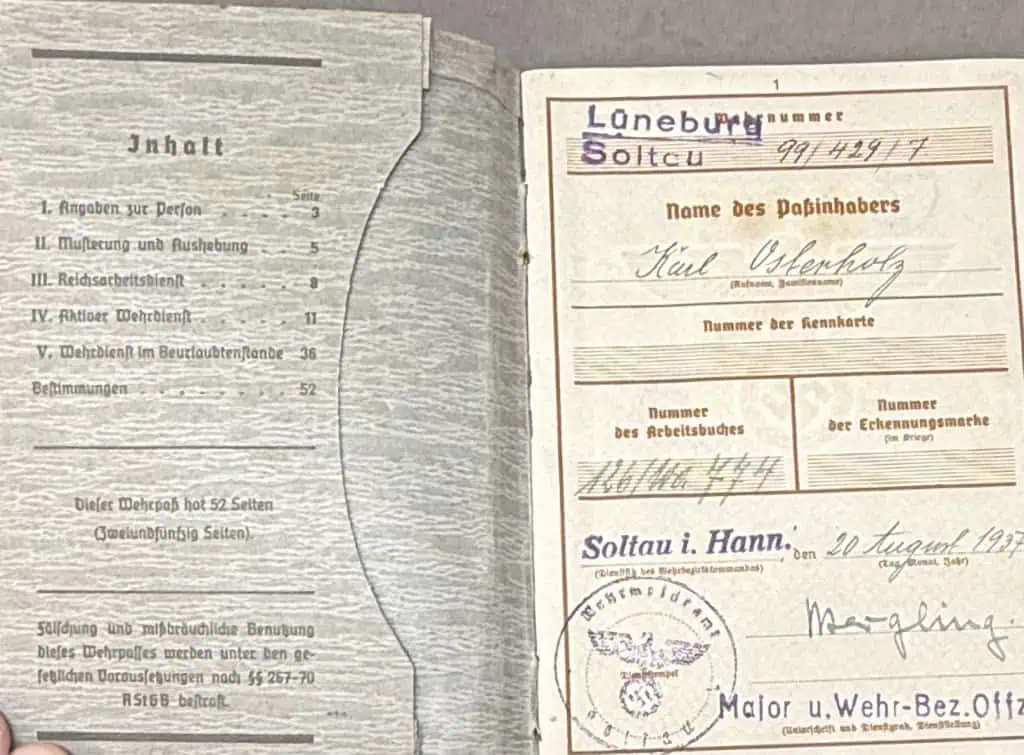 Inhalt
Seite
I. Angaben zur Person . . . . 3
II. Musterung und Aushebung . . 5
III. Reichsarbeitsdienst . . . . . 8
IV. Aktiver Wehrdienst . . . . . 11
V. Wehrdienst im Beurlaubtenstande 36
Bestimmungen . . . . . . . . 52
Dieser Wehrpaß hat 52 Seiten
(Zweiundfünfzig Seiten).
Fälschung und mißbräuchliche Benutzung
dieses Wehrpasses werden unter den ge-
setzlichen Voraussetzungen nach §§ 267-70
RStGB bestraft.
1
Wehrnummer
Lüneburg
Soltau 99/429/7
Name des Paßinhabers
Karl Osterholz
(Rufname, Familienname)
Nummer der Kennkarte
Nummer
des Arbeitsbuches
126/Wa 774
Nummer
der Erkennungsmarke
(im Kriege)
Soltau i. Hann., den 20 August 1937
(Dienstsitz des Wehrbezirkskommandos)
(Tag, Monat, Jahr)
Wehrmeldeamt
Dienststempel
Soltau
Mergling.
Major u. Wehr-Bez. Offz
(Unterschrift und Dienstgrad, Dienststellung)